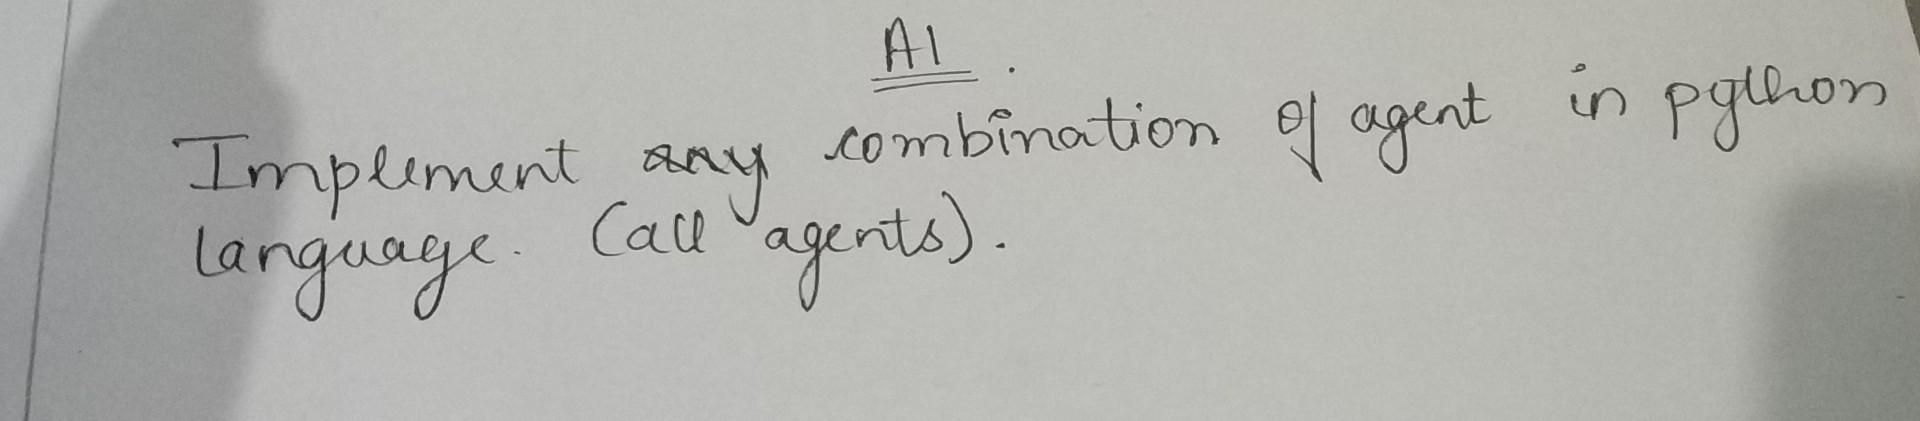 AI.
Implement any combination of agent in python
language. (all agents).